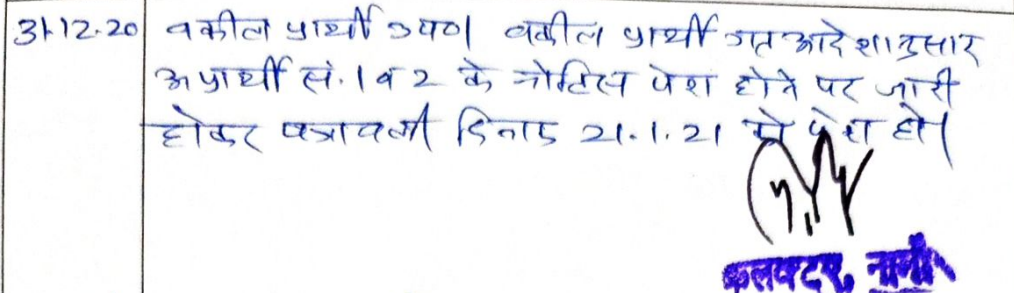 31.12.20 वकील प्रार्थी उप०। वकील प्रार्थी गत आदेशानुसार
अप्रार्थी सं. 1 व 2 के नोटिस पेश होने पर जारी
होकर पत्रावली दिनांक 21.1.21 को पेश हो।
कलक्टर, नागौर